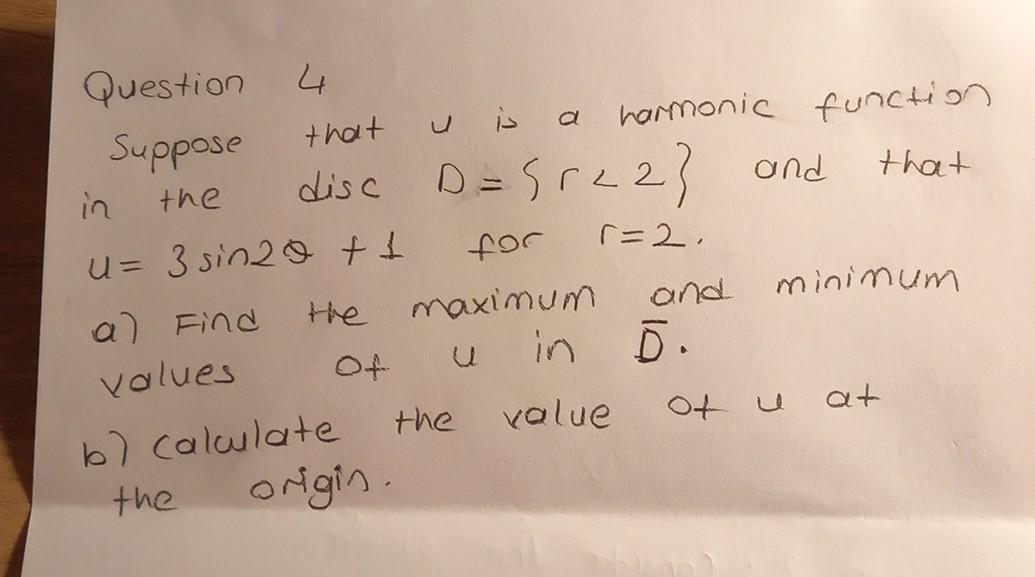 Question 4
Suppose that u is a harmonic function
in the disc D = {r < 2} and that
u = 3 sin2θ + 1 for r=2.
a) Find the maximum and minimum
values of u in D̅.
b) Calculate the value of u at
the origin.